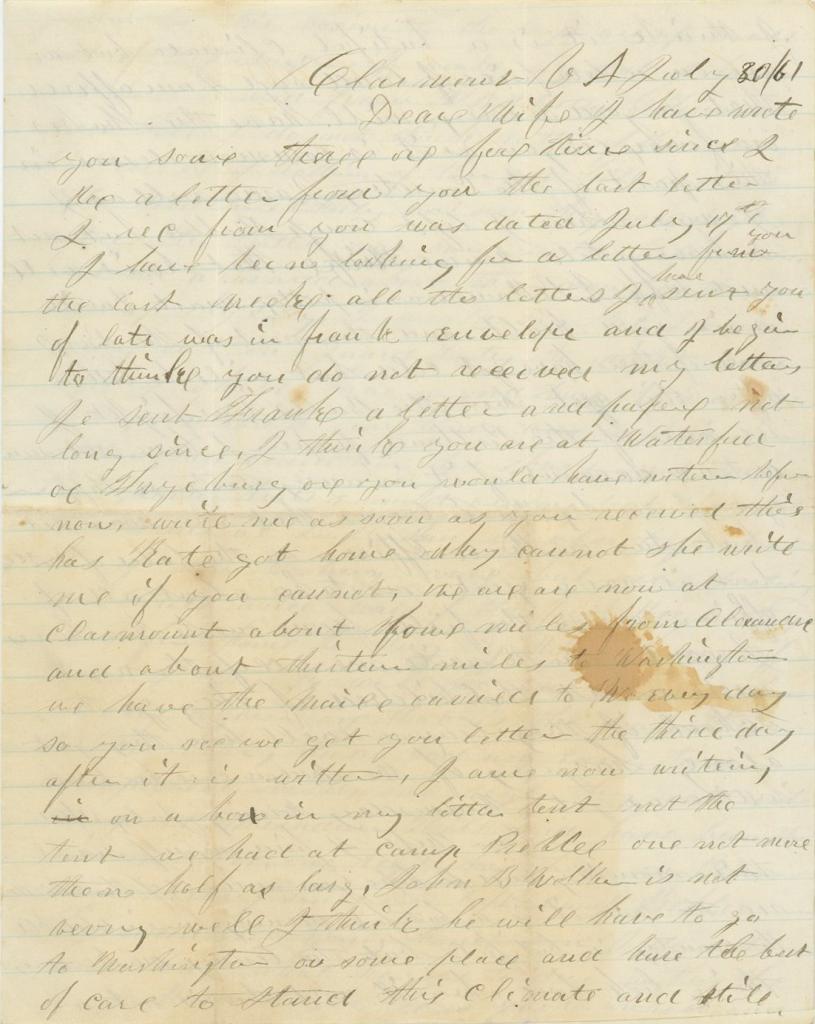 Clarmount V A July 30/61
Dear Wife I have wrote
you some three or fore times since I
rec a letter from you the last letter
I rec from you was dated July 17th
I have been looking for a letter from you
the last week. all the letters I have sent you
of late was in frank envelope and I begin
to thinke you do not received my letters
I sent Frank a letter and paper not
long since, I think you are at Waterford
or Fryeburg or you would have riten before
now, write me as soon as you received this
has Kate got home why cannot she write
me if you cannot, we are now at
Clarmount about fore miles from Alexandra
and about thirteen miles to Washington
we have the maile carried to W every day
so you see we get you letter the third day
after it is witten, I am now writeing
in on a box in my little tent not the
tent we had at camp Preble one not more
then half as larg, John B Walker is not
verry well I think he will have to go
to Washington or some place and have the best
of care to stand this climate and still